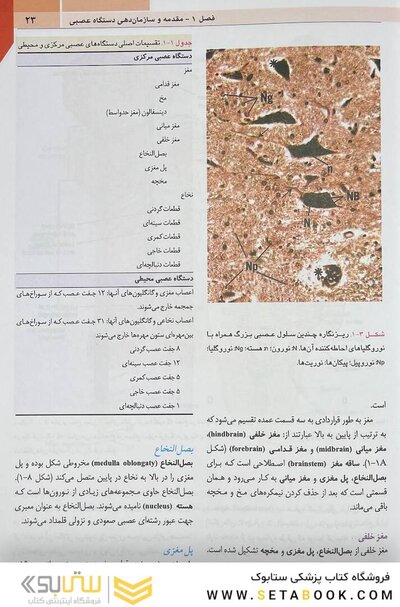 فصل ۱ - مقدمه و سازمان‌دهی دستگاه عصبی
۲۳
جدول ۱-۱. تقسیمات اصلی دستگاه‌های عصبی مرکزی و محیطی
دستگاه عصبی مرکزی
مغز
مغز قدامی
مخ
دینسفالون (مغز حدواسط)
مغز میانی
مغز خلفی
بصل‌النخاع
پل مغزی
مخچه
نخاع
قطعات گردنی
قطعات سینه‌ای
قطعات کمری
قطعات خاجی
قطعات دنبالچه‌ای
دستگاه عصبی محیطی
اعصاب مغزی و گانگلیون‌های آنها: ۱۲ جفت عصب که از سوراخ‌های
جمجمه خارج می‌شوند.
اعصاب نخاعی و گانگلیون‌های آنها: ۳۱ جفت عصب که از سوراخ‌های
بین‌مهره‌ای ستون مهره‌ها خارج می‌شوند
۸ جفت عصب گردنی
۱۲ جفت عصب سینه‌ای
۵ جفت عصب کمری
۵ جفت عصب خاجی
۱ جفت عصب دنبالچه‌ای
Ng
n
NB
N
Np
شکل ۳-۱. ریزنگاره چندین سلول عصبی بزرگ همراه با
نوروگلیاهای احاطه‌کننده آن‌ها. N: نورون؛ n: هسته؛ Ng: نوروگلیا؛
Np: نوروپیل؛ پیکان‌ها: نوریت‌ها.
است.
مغز به طور قراردادی به سه قسمت عمده تقسیم می‌شود که
به ترتیب از پایین به بالا عبارتند از: مغز خلفی (hindbrain)،
مغز میانی (midbrain) و مغز قدامی (forebrain) (شکل
۱-۱۸). ساقه مغز (brainstem) اصطلاحی است که برای
بصل‌النخاع، پل مغزی و مغز میانی به کار می‌رود و همان
قسمتی است که بعد از حذف کردن نیمکره‌های مخ و مخچه
باقی می‌ماند.
مغز خلفی
مغز خلفی از بصل‌النخاع، پل مغزی و مخچه تشکیل شده است.
بصل‌النخاع
بصل‌النخاع (medulla oblongaty) مخروطی شکل بوده و پل
مغزی را در بالا به نخاع در پایین متصل می‌کند (شکل ۸-۱).
بصل‌النخاع حاوی مجموعه‌های زیادی از نورون‌ها است که
هسته (nucleus) نامیده می‌شوند. بصل‌النخاع به عنوان معبری
جهت عبور رشته‌های عصبی صعودی و نزولی قلمداد می‌شوند.
پل مغزی
فروشگاه کتاب پزشکی ستابوک
WWW.SETABOOK.COM
ستابوک
فروشگاه اینترنتی کتاب